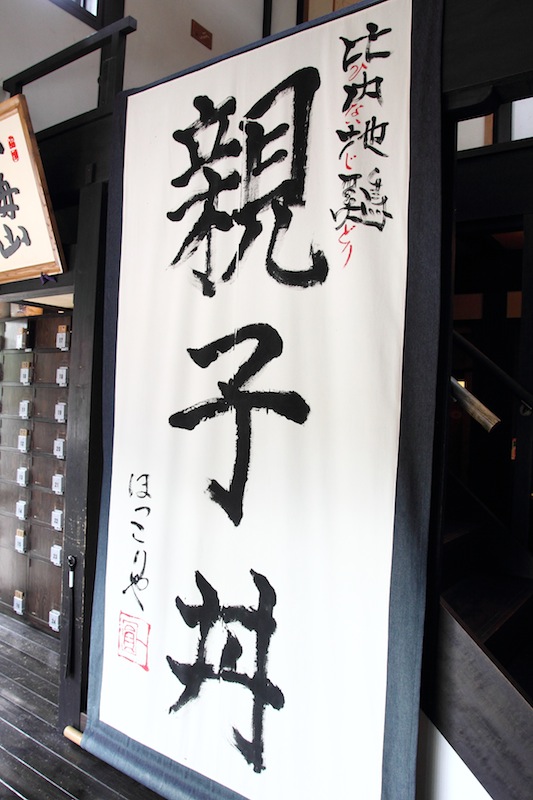 比内地鶏
ひないじどり
親子丼
ほっこりや